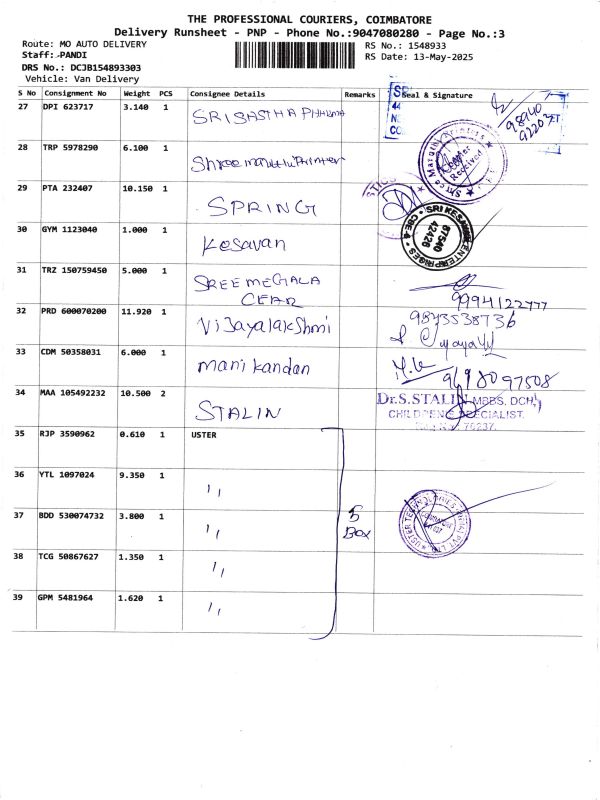 THE PROFESSIONAL COURIERS, COIMBATORE
Delivery Runsheet - PNP - Phone No.:9047080280 - Page No.:3
Route: MO AUTO DELIVERY
RS No.: 1548933
Staff:-PANDI
RS Date: 13-May-2025
DRS No.: DCJB154893303
Vehicle: Van Delivery
S No Consignment No Weight PCS Consignee Details Remarks Seal & Signature
27 DPI 623717 3.140 1 SRI SASTHA
98940
92203
28 TRP 5978290 6.100 1 Shree Printer
Shree Maruthi Printers
Received
29 PTA 232407 10.150 1 SPRING
30 GYM 1123040 1.000 1 Kesavan
SRI KESAVAN ENTERPRISES CBE-4
87540
42426
31 TRZ 150759450 5.000 1 SREE MEGALA
CEAR
9994122777
32 PRD 600070200 11.920 1 Vijayalakshmi
9873538736
33 CDM 50358031 6.000 1 manikandan
9698097508
34 MAA 105492232 10.500 2 STALIN
Dr.S.STALIN MBBS, DCH,
CHILDREN'S SPECIALIST.
76237.
35 RJP 3590962 0.610 1 USTER
36 YTL 1097024 9.350 1 ,,
37 BDD 530074732 3.800 1 ,, 5
Box
USTER TECHNOLOGIES
38 TCG 50867627 1.350 1 ,,
39 GPM 5481964 1.620 1 ,,